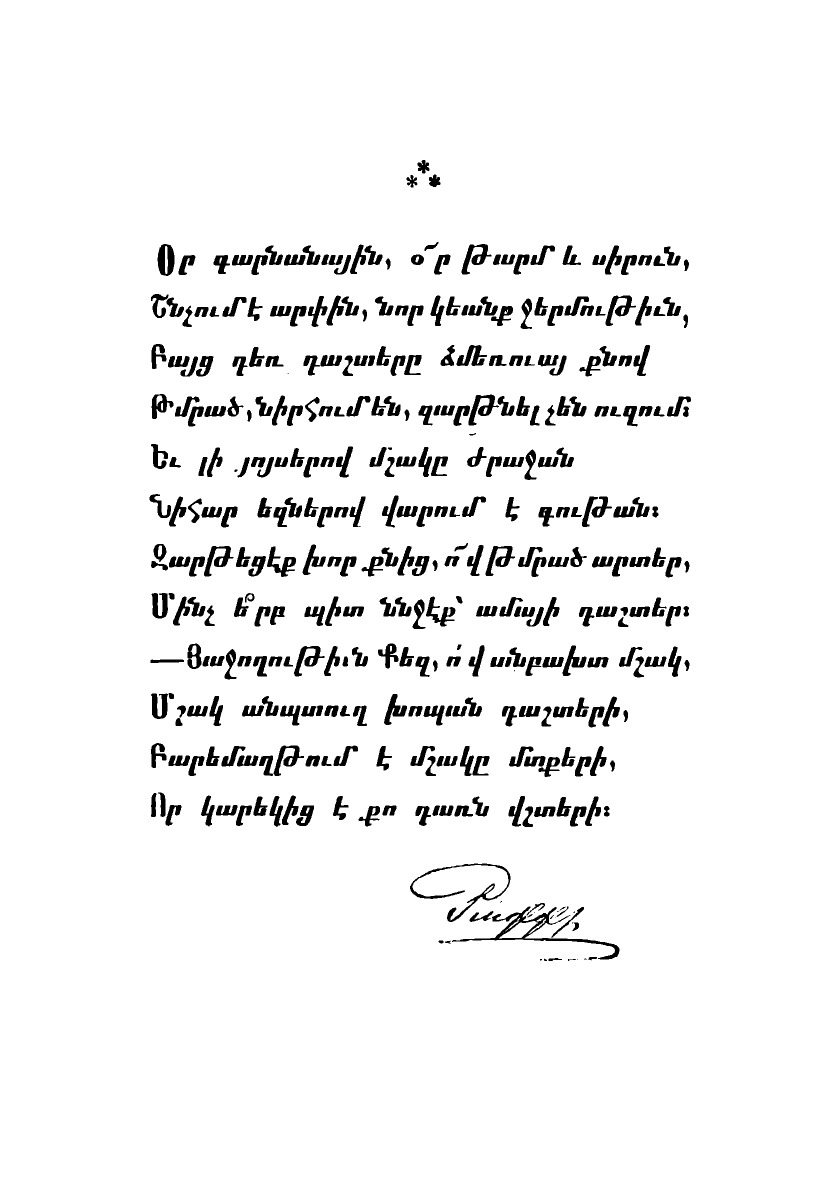 ⁂
Օր գարնանային, օ՜ր թարմ և սիրուն,
Շնչում է արփին, նոր կեանք ջերմութիւն,
Բայց դեռ դաշտերը ձմեռուայ քնով
Թմրած, նիրհում են, զարթնել չեն ուզում։
Եւ լի յոյսերով մշակը ժրաջան
Նիհար եզներով վարում է գութան։
Զարթեցէք խոր քնից, ո՜վ թմրած արտեր,
Մինչ ե՞րբ պիտ ննջէք՝ ամայի դաշտեր։
—Յաջողութիւն Քեզ, ո՛վ անբախտ մշակ,
Մշակ անպտուղ խոպան դաշտերի,
Բարեմաղթում է մշակը մտքերի,
Որ կարեկից է քո դառն վշտերի։
Րաֆֆի